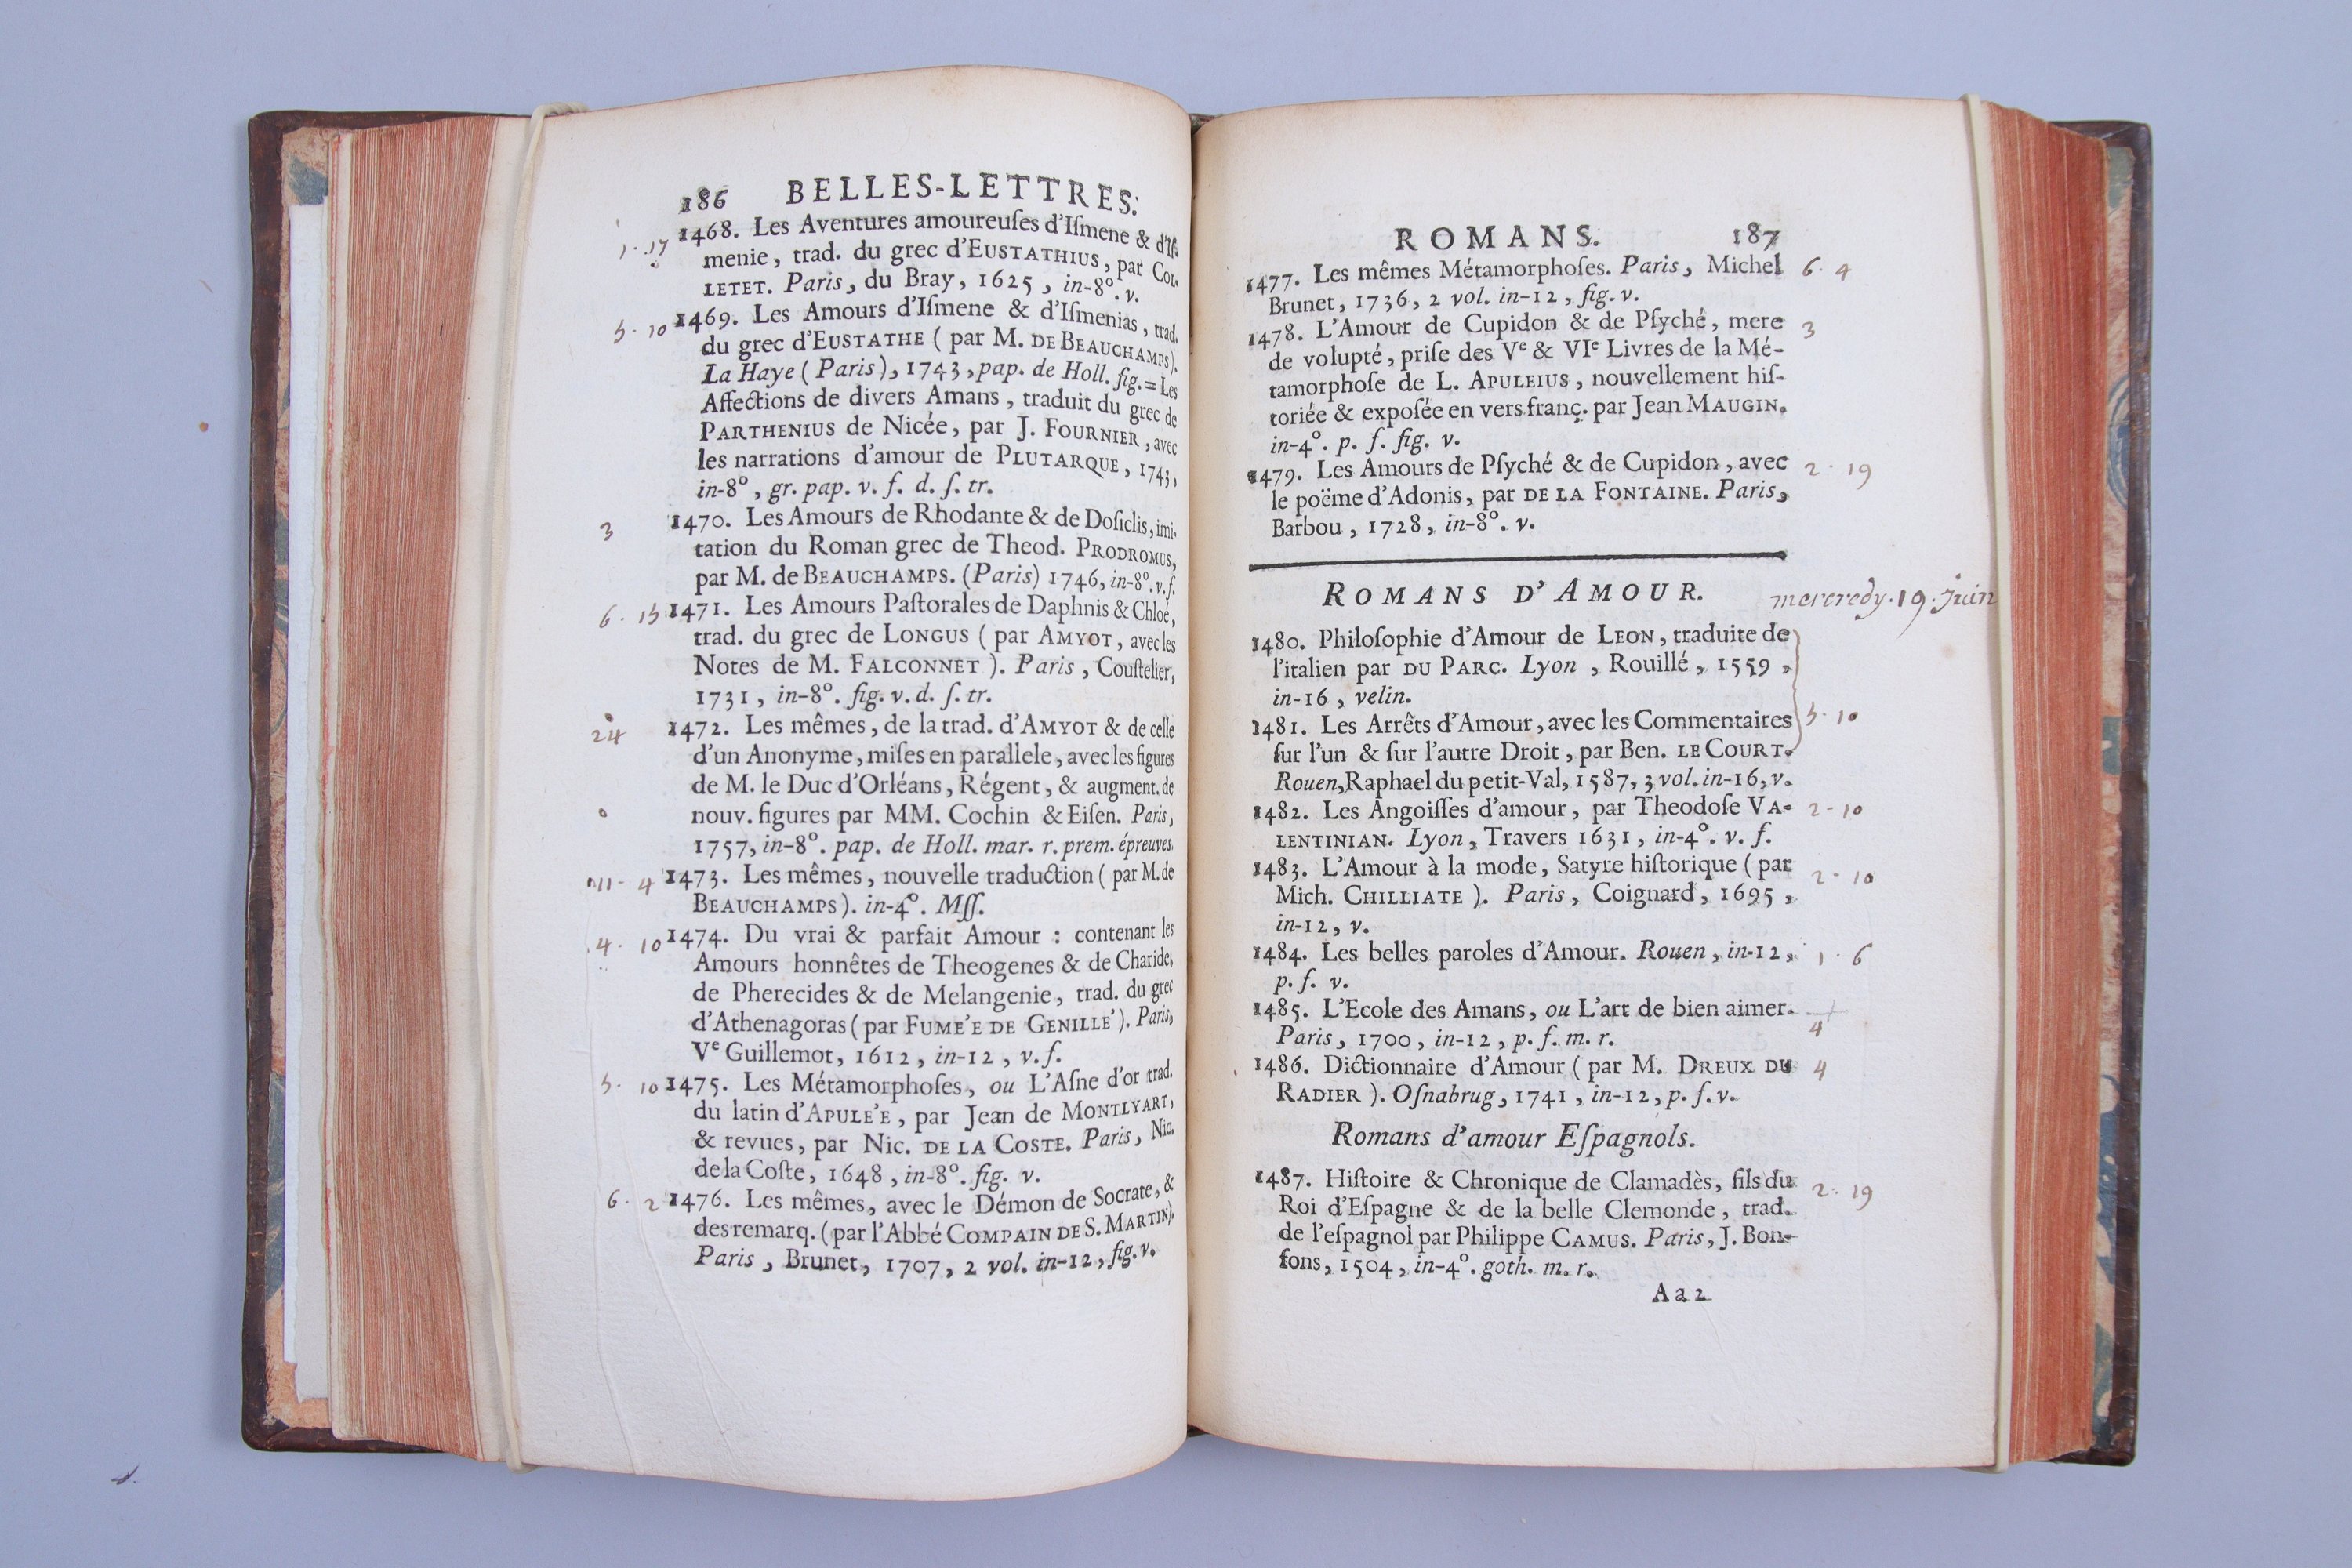 186 BELLES-LETTRES.
1 · 17 1468. Les Aventures amoureuſes d'Iſmene & d'Iſ-
menie, trad. du grec d'EUSTATHIUS, par COL-
LETET. Paris, du Bray, 1625, in-8°. v.
5 · 10 1469. Les Amours d'Iſmene & d'Iſmenias, trad.
du grec d'EUSTATHE ( par M. DE BEAUCHAMPS).
La Haye ( Paris ), 1743, pap. de Holl. fig. = Les
Affections de divers Amans, traduit du grec de
PARTHENIUS de Nicée, par J. FOURNIER, avec
les narrations d'amour de PLUTARQUE, 1743,
in-8°, gr. pap. v. f. d. ſ. tr.
3 1470. Les Amours de Rhodante & de Doſiclis, imi-
tation du Roman grec de Theod. PRODROMUS,
par M. de BEAUCHAMPS. (Paris) 1746, in-8°. v. f.
6 · 15 1471. Les Amours Paſtorales de Daphnis & Chloé,
trad. du grec de LONGUS ( par AMYOT, avec les
Notes de M. FALCONNET ). Paris, Couſtelier,
1731, in-8°. fig. v. d. ſ. tr.
24 1472. Les mêmes, de la trad. d'AMYOT & de celle
d'un Anonyme, miſes en parallele, avec les figures
de M. le Duc d'Orléans, Régent, & augment. de
nouv. figures par MM. Cochin & Eiſen. Paris,
1757, in-8°. pap. de Holl. mar. r. prem. épreuves.
11 · 4 1473. Les mêmes, nouvelle traduction ( par M. de
BEAUCHAMPS ). in-4°. Mſſ.
4 · 10 1474. Du vrai & parfait Amour : contenant les
Amours honnêtes de Theogenes & de Charide,
de Pherecides & de Melangenie, trad. du grec
d'Athenagoras ( par FUME'E DE GENILLE' ). Paris,
Ve Guillemot, 1612, in-12, v. f.
5 · 10 1475. Les Métamorphoſes, ou L'Aſne d'or trad.
du latin d'APULE'E, par Jean de MONTLYART,
& revues, par Nic. DE LA COSTE. Paris, Nic.
de la Coſte, 1648, in-8°. fig. v.
6 · 2 1476. Les mêmes, avec le Démon de Socrate, &
des remarq. (par l'Abbé COMPAIN DE S. MARTIN).
Paris, Brunet, 1707, 2 vol. in-12, fig. v.
ROMANS. 187
1477. Les mêmes Métamorphoſes. Paris, Michel 6 · 4
Brunet, 1736, 2 vol. in-12, fig. v.
1478. L'Amour de Cupidon & de Pſyché, mere 3
de volupté, priſe des Ve & VIe Livres de la Mé-
tamorphoſe de L. APULEIUS, nouvellement hiſ-
toriée & expoſée en vers franç. par Jean MAUGIN.
in-4°. p. f. fig. v.
1479. Les Amours de Pſyché & de Cupidon, avec 2 · 19
le poëme d'Adonis, par DE LA FONTAINE. Paris,
Barbou, 1728, in-8°. v.
ROMANS D'AMOUR. mercredy · 19 · juin
1480. Philoſophie d'Amour de LEON, traduite de
l'italien par DU PARC. Lyon, Rouillé, 1559,
in-16, velin.
1481. Les Arrêts d'Amour, avec les Commentaires 5 · 10
ſur l'un & ſur l'autre Droit, par Ben. LE COURT.
Rouen, Raphael du petit-Val, 1587, 3 vol. in-16, v.
1482. Les Angoiſſes d'amour, par Theodoſe VA- 2 - 10
LENTINIAN. Lyon, Travers 1631, in-4°. v. f.
1483. L'Amour à la mode, Satyre hiſtorique ( par 2 - 10
Mich. CHILLIATE ). Paris, Coignard, 1695,
in-12, v.
1484. Les belles paroles d'Amour. Rouen, in-12, 1 · 6
p. f. v.
1485. L'Ecole des Amans, ou L'art de bien aimer. 4
Paris, 1700, in-12, p. f. m. r.
1486. Dictionnaire d'Amour ( par M. DREUX DU 4
RADIER ). Oſnabrug, 1741, in-12, p. f. v.
Romans d'amour Eſpagnols.
1487. Hiſtoire & Chronique de Clamadès, fils du 2 · 19
Roi d'Eſpagne & de la belle Clemonde, trad.
de l'eſpagnol par Philippe CAMUS. Paris, J. Bon-
fons, 1504, in-4°. goth. m. r.
A a 2